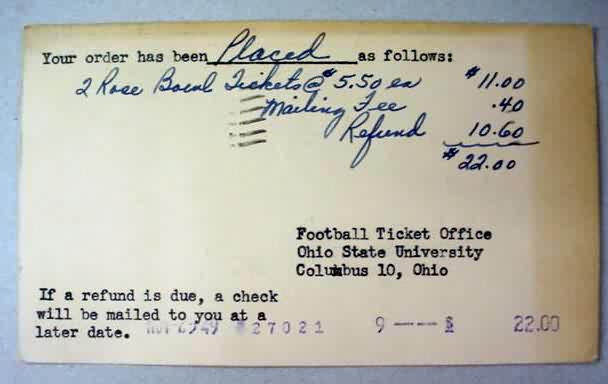 Your order has been Placed as follows:
2 Rose Bowl Tickets @ $5.50 ea $11.00
Mailing Fee .40
Refund 10.60
$22.00
Football Ticket Office
Ohio State University
Columbus 10, Ohio
If a refund is due, a check
will be mailed to you at a
later date. 49 27021 9 ---- 22.00